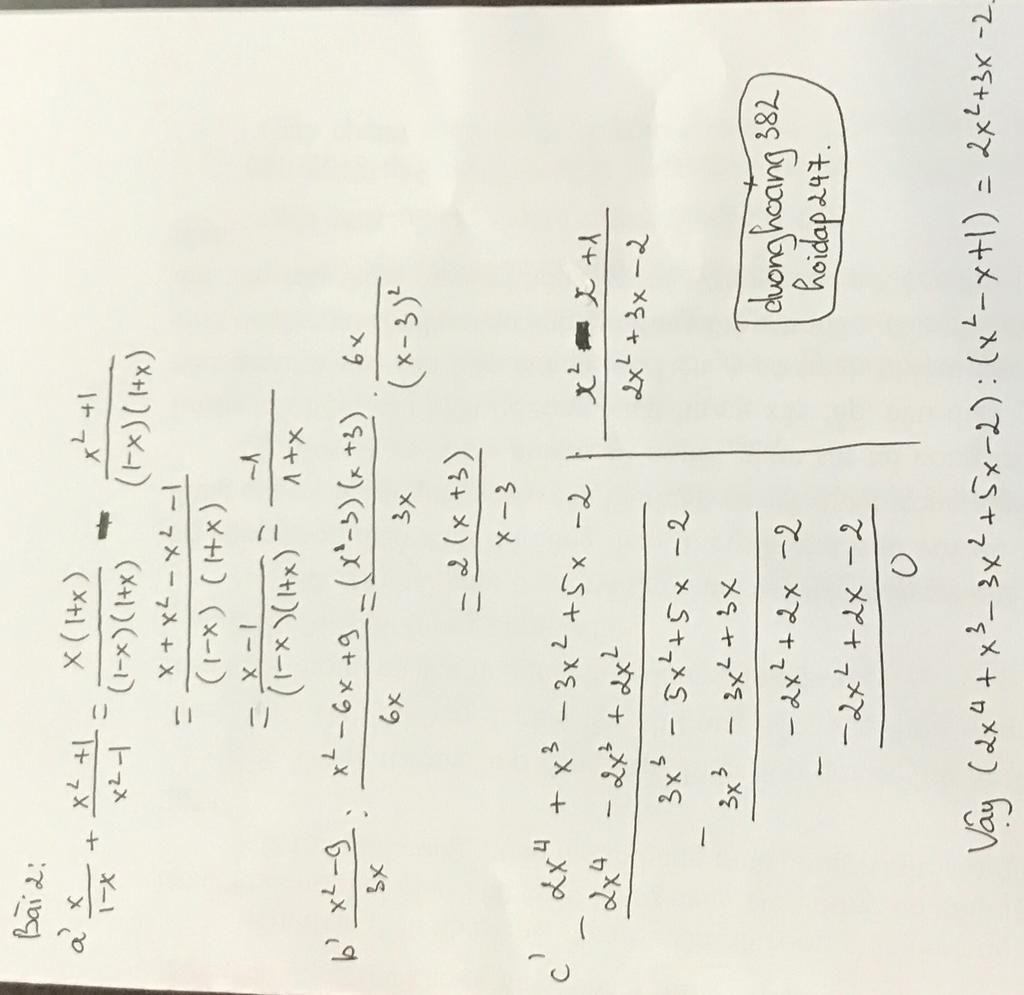 Bài 2:
a) x/(1-x) + (x² + 1)/(x² - 1) = x(1+x)/((1-x)(1+x)) - (x² + 1)/((1-x)(1+x))
= (x + x² - x² - 1)/((1-x)(1+x))
= (x - 1)/((1-x)(1+x)) = -1/(1+x)
b) (x² - 9)/3x : (x² - 6x + 9)/6x = (x - 3)(x + 3)/3x · 6x/(x - 3)²
= 2(x + 3)/(x - 3)
c) 2x⁴ + x³ - 3x² + 5x - 2 | x² - x + 1
- 2x⁴ - 2x³ + 2x² | 2x² + 3x - 2
3x³ - 5x² + 5x - 2
- 3x³ - 3x² + 3x
- 2x² + 2x - 2
- - 2x² + 2x - 2
0
duonghoang382
hoidap247.
Vậy (2x⁴ + x³ - 3x² + 5x - 2) : (x² - x + 1) = 2x² + 3x - 2.